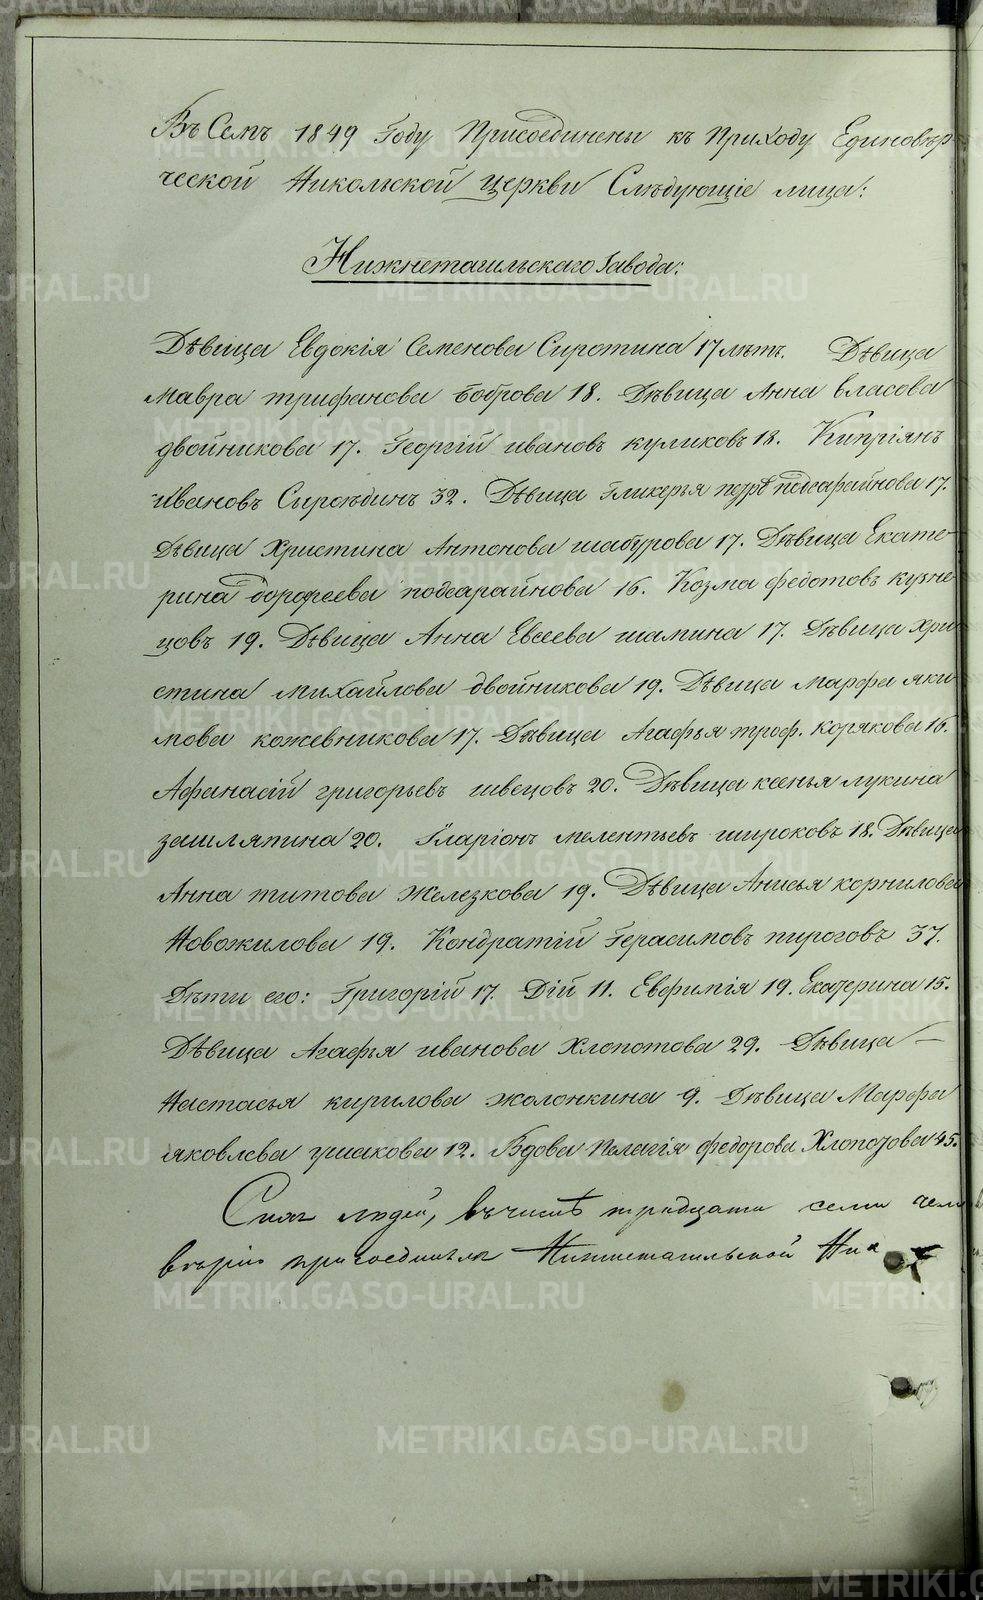 Въ Семъ 1849 Году Присоединены къ Приходу Единовѣр-
ческой Никольской церкви Слѣдующіе лица:
Нижнетагильскаго Завода:
Дѣвица Евдокія Семенова Сиротина 17 лѣтъ. Дѣвица
Мавра трифанова Боброва 18. Дѣвица Анна власова
двойникова 17. Георгій ивановъ куликовъ 18. Кипріянъ
ивановъ Сыроѣдинъ 32. Дѣвица Гликерья петр. подсарайнова 17.
Дѣвица Христина Антонова шабурова 17. Дѣвица Екате-
рина дорофеева подсарайнова 16. Козма федотовъ кузне-
цовъ 19. Дѣвица Анна Евсеева шамина 17. Дѣвица Хри-
стина михайлова двойникова 19. Дѣвица марфа яки-
мова кожевникова 17. Дѣвица Агафья троф. корякова 16.
Афанасій григорьевъ швецовъ 20. Дѣвица ксенья лукина
зашляпина 20. Іларіонъ мелентьевъ широковъ 18. Дѣвица
Анна титова Железкова 19. Дѣвица Анисья корнилова
Новожилова 19. Кондратій Герасимовъ пироговъ 37.
Дѣти его: Григорій 17. Дій 11. Евфимія 19. Екатерина 15.
Дѣвица Агафья иванова Хлопотова 29. Дѣвица —
Настасья кирилова жолонкина 9. Дѣвица Марфа
яковлева ушакова 12. Вдова Пелагія федорова Хлопотова 45.
людей, въ числѣ тридцати семи чело
Нижнетагильской Ник
METRIKI.GASO-URAL.RU